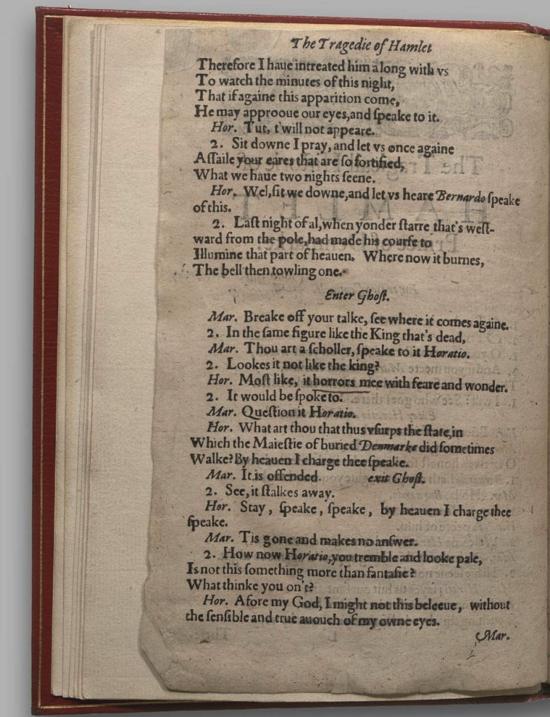 The Tragedie of Hamlet
Therefore I haue intreated him along with vs
To watch the minutes of this night,
That if againe this apparition come,
He may approoue our eyes, and speake to it.
Hor. Tut, t'will not appeare.
2. Sit downe I pray, and let vs once againe
Assaile your eares that are so fortified,
What we haue two nights seene.
Hor. Wel, sit we downe, and let vs heare Bernardo speake
of this.
2. Last night of al, when yonder starre that's west-
ward from the pole, had made his course to
Illumine that part of heauen. Where now it burnes,
The bell then towling one.
Enter Ghost.
Mar. Breake off your talke, see where it comes againe.
2. In the same figure like the King that's dead,
Mar. Thou art a scholler, speake to it Horatio.
2. Lookes it not like the king?
Hor. Most like, it horrors mee with feare and wonder.
2. It would be spoke to.
Mar. Question it Horatio.
Hor. What art thou that thus vsurps the state, in
Which the Maiestie of buried Denmarke did sometimes
Walke? By heauen I charge thee speake.
Mar. It is offended. exit Ghost.
2. See, it stalkes away.
Hor. Stay, speake, speake, by heauen I charge thee
speake.
Mar. Tis gone and makes no answer.
2. How now Horatio, you tremble and looke pale,
Is not this something more than fantasie?
What thinke you on't?
Hor. Afore my God, I might not this beleeue, without
the sensible and true auouch of my owne eyes.
Mar.